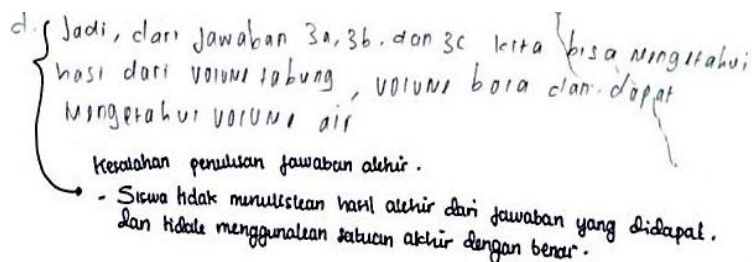 d. Jadi, dari Jawaban 3a, 3b. dan 3c kita bisa Mengetahui
hasi dari volume tabung, volume bola dan dapat
Mengetahui volume air
Kesalahan penulisan jawaban akhir.
- Siswa tidak menuliskan hasil akhir dari jawaban yang didapat.
dan tidak menggunakan satuan akhir dengan benar.